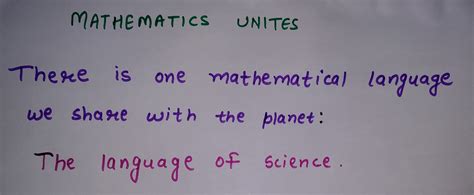 MATHEMATICS UNITES
There is one mathematical language
we share with the planet:
The language of science.